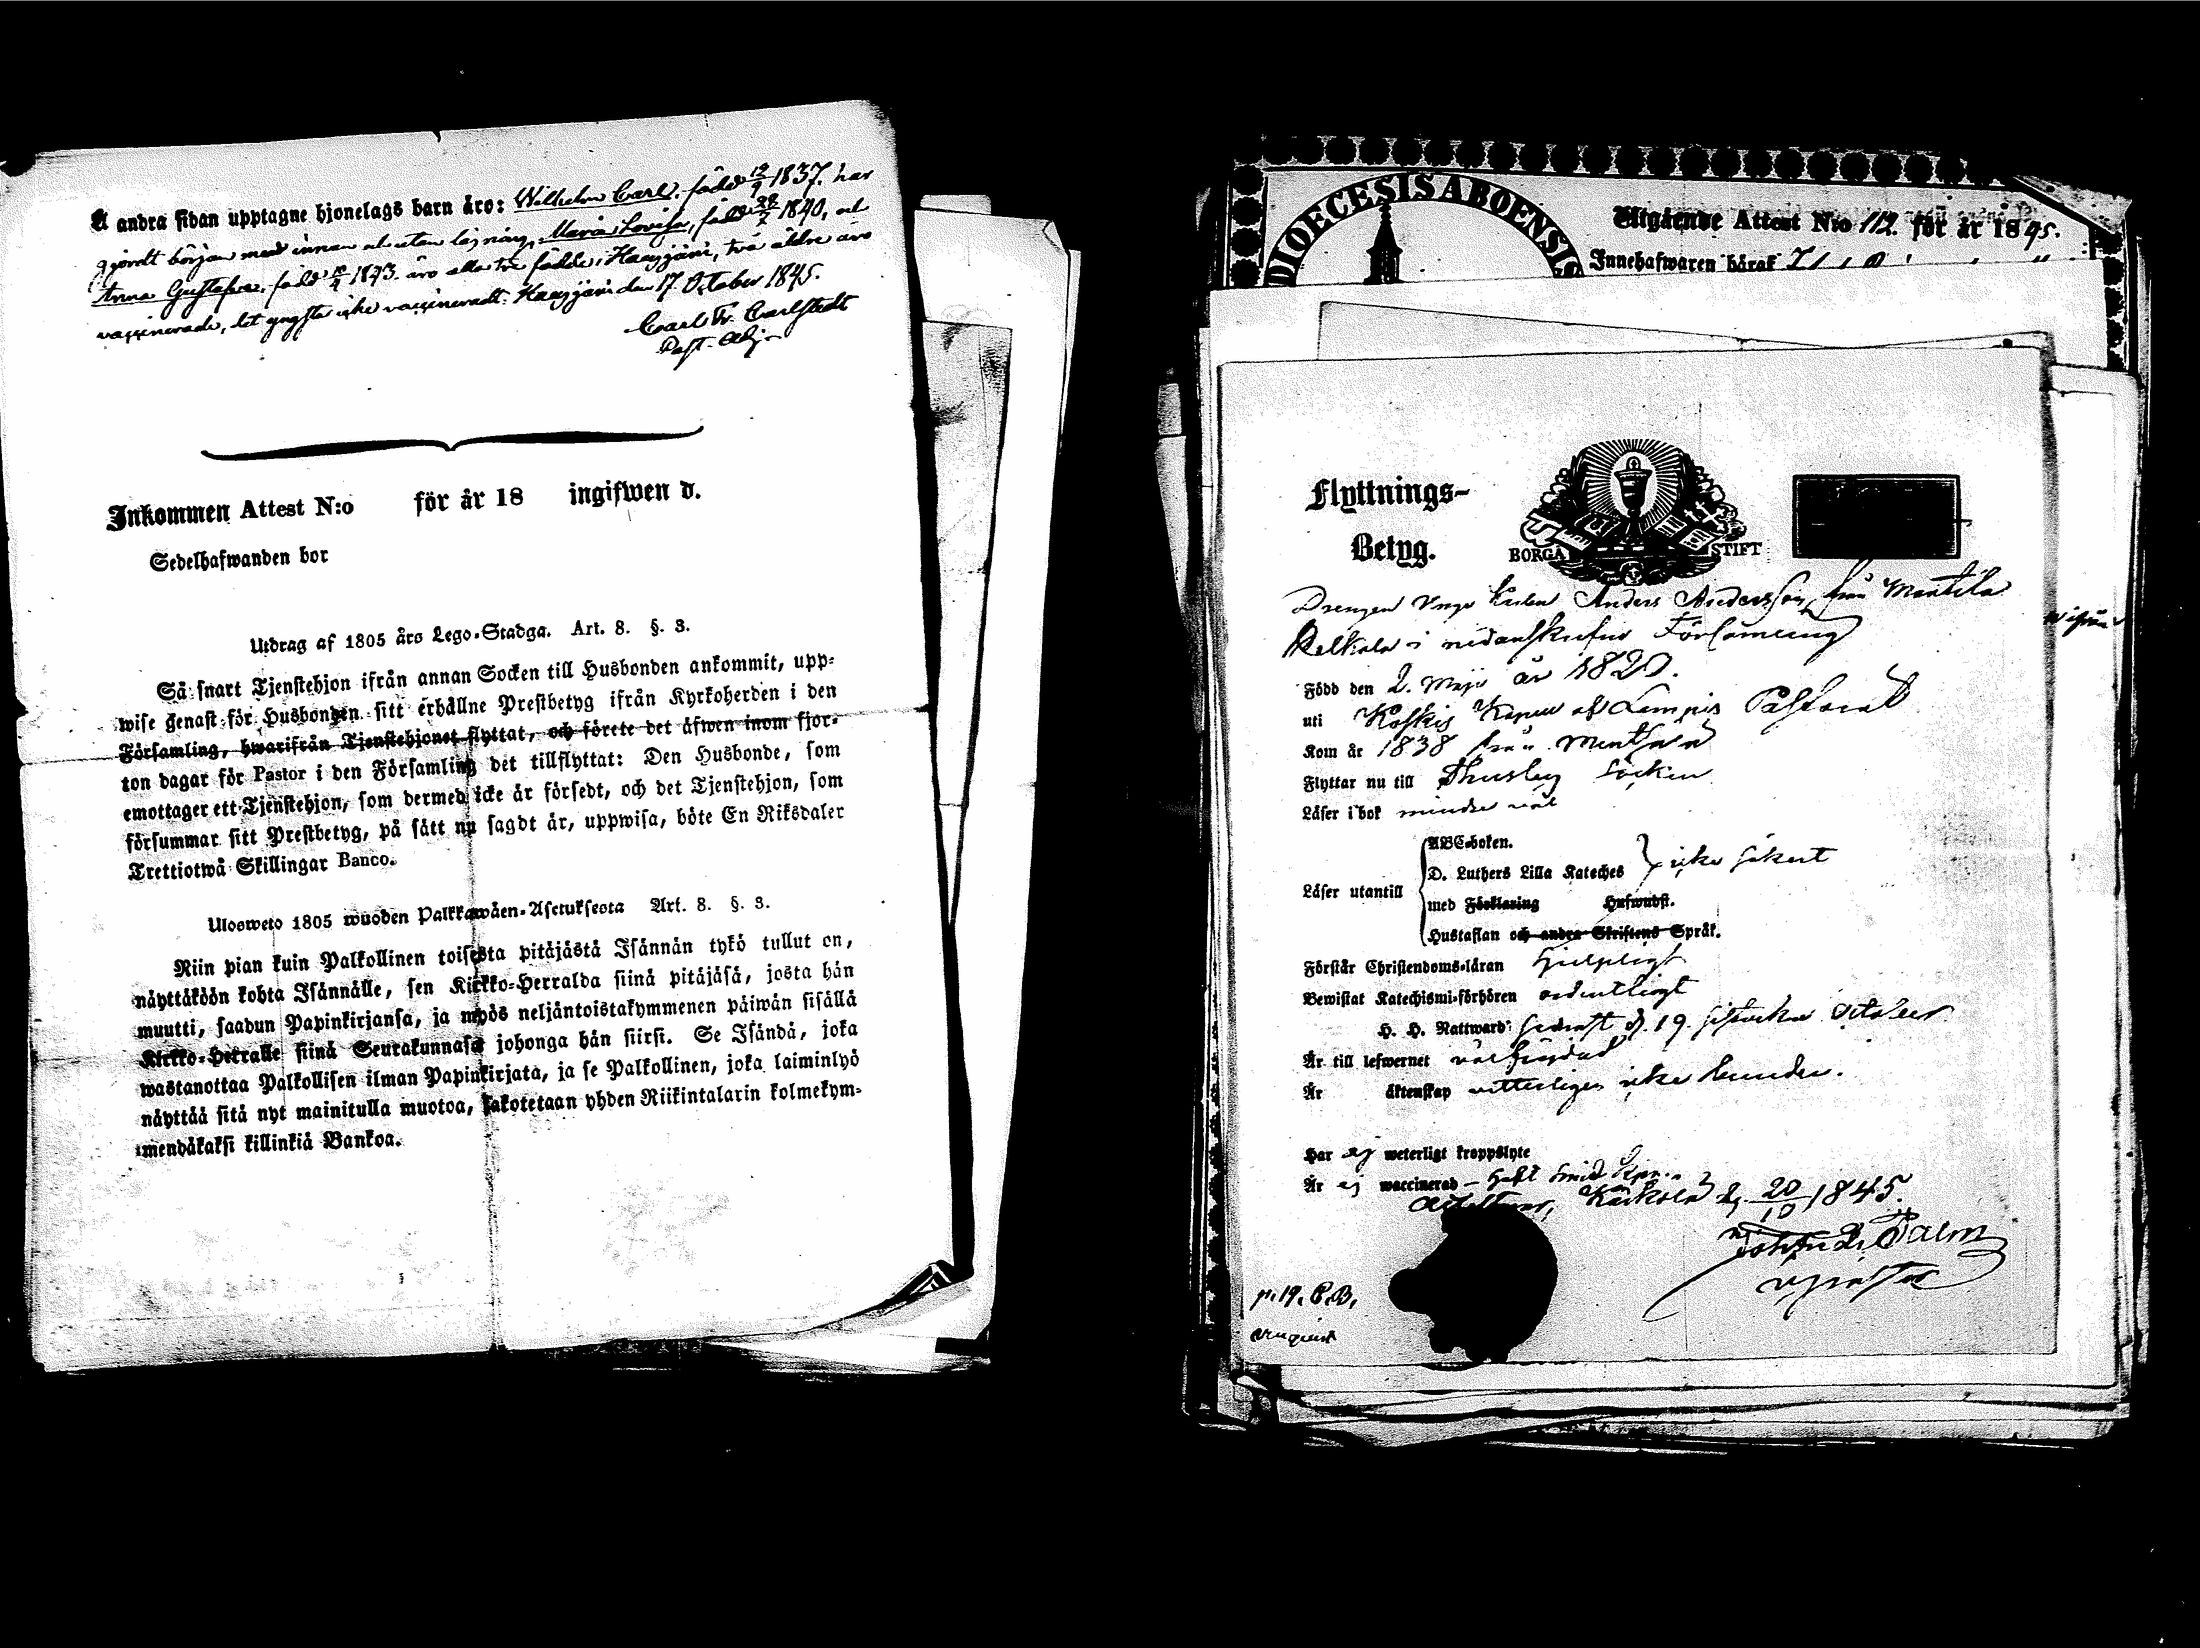 Å andra sidan upptagne hjonelags barn äro: Wilhelm Carl, född 12/9 1837. har
gjordt början med innan och utan läsning, Maria Lovisa, född 28/7 1840, och
Anna Gustafva, född 1843. äro alla tre födde i Haapjärvi, två äldre äro
vaccinerade, det yngsta icke vaccineradt. den 17 October 1845.
Carl Fr. Carlstedt
Past. Adj.
Inkommen Attest N:o för år 18 ingifwen d.
Sedelhafwanden bor
Utdrag af 1805 års Lego-Stadga. Art. 8. §. 3.
Så snart Tjenstehjon ifrån annan Socken till Husbonden ankommit, upp-
wise genast för Husbonden sitt erhållne Prestbetyg ifrån Kyrkoherden i den
Församling, hwarifrån Tjenstehjonet flyttat, och förete det äfwen inom fjor-
ton dagar för Pastor i den Församling det tillflyttat: Den Husbonde, som
emottager ett Tjenstehjon, som dermed icke är försedt, och det Tjenstehjon, som
försummar sitt Prestbetyg, på sätt nu sagdt är, uppwisa, böte En Riksdaler
Trettiotwå Skillingar Banco.
Ulosweto 1805 wuoden Palkkawäen-Asetuksesta Art. 8. §. 3.
Niin pian kuin Palkollinen toisesta pitäjästä Isännän tykö tullut on,
näyttäköön kohta Isännälle, sen Kirkko-Herralda siinä pitäjäsä, josta hän
muutti, saadun Papinkirjansa, ja myös neljäntoistakymmenen päiwän sisällä
Kirkko-Herralle siinä Seurakunnasa johonga hän siirsi. Se Isändä, joka
wastanottaa Palkollisen ilman Papinkirjata, ja se Palkollinen, joka laiminlyö
näyttää sitä nyt mainitulla muotoa, sakotetaan yhden Riikintalarin kolmekym-
mendäkaksi killinkiä Bankoa.
DIOECESIS ABOENSIS
Utgående Attest N:o 112. för år 1845.
Innehafwaren häraf
Flyttnings-
Betyg.
BORGÅ STIFT
Drengen Unga Karlen Anders Andersson från Mantila
i nedanskrifne Församling
Född den 2. Maji år 1820.
uti Koskis Kapell af Lampis Pastorat
Kom år 1838 från
Flyttar nu till Thusby Socken
Läser i bok mindre väl
ABC-boken.
D. Luthers Lilla Kateches } icke säkert
Läser utantill
med Förklaring Huswudst.
Hustaflan och andra Skriftens Språk.
Förstår Christendoms-läran hjelpligt
Bewistat Katechismi-förhören ordentligt
H. H. Nattward: sednast d. 19. sistvekne October
Är till lefwernet välfrejdad
Är äktenskap vetterligen icke bunden.
Har ej weterligt kroppslyte
Är ej waccinerad – haft
Attesterar, Kärkölä d. 20/10 1845.
Palm
v. pastor
p. 19. C.B.